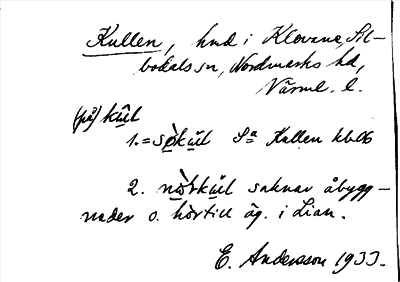 Kullen, hmd i Klovane, Sil-
bodals sn, Nordmarks hd,
Värml. l.
(på) kul
1. = sökul Sa Kullen kbl 06
2. nörkul saknar åbygg-
nader o. hör till äg. i Lian.
E. Andersson 1933.